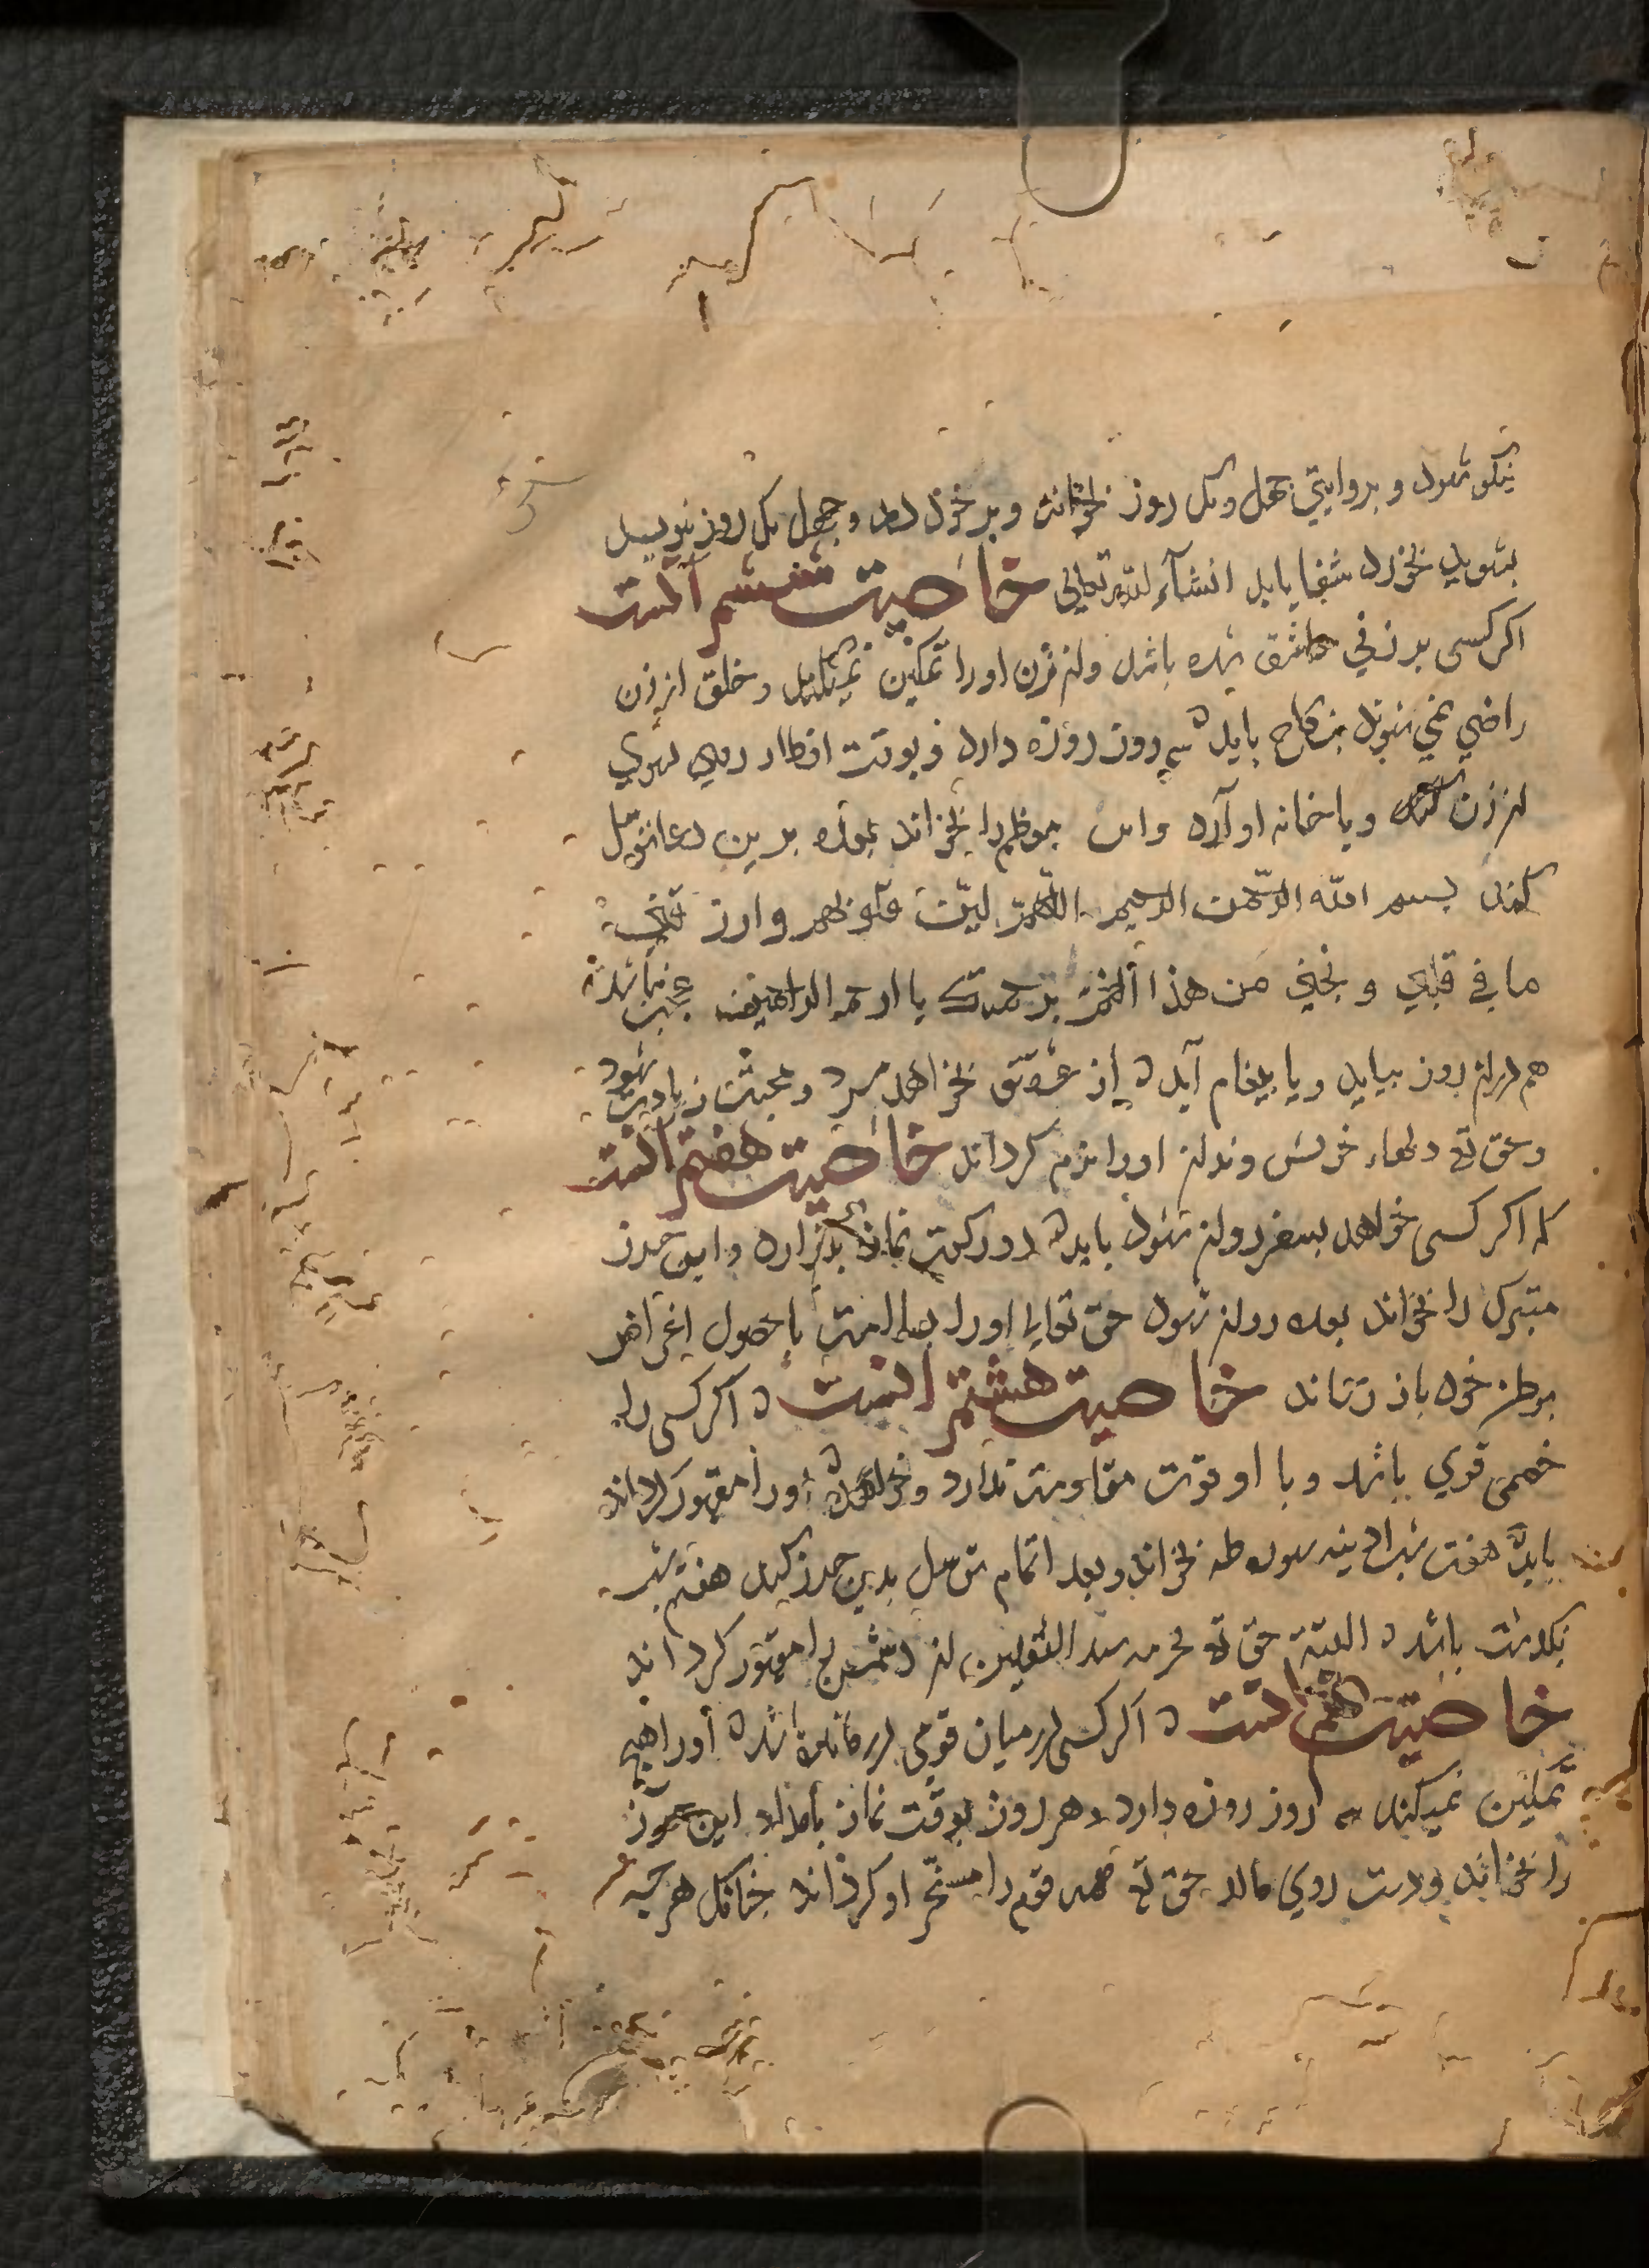 نیکو شود و بروایتی چهل و یک روز بخواند و بر خود دمد و چهل یک روز بنویسد
بشوید بخورد شفا یابد انشآء الله تعالی خاصیت ششم آنست
اکر کسی بر زنی عاشق شده باشد و آن زن اورا تمکین نمیکند و خلق از زن
راضی نمی شوند بنکاح باید که سه روز روزه دارد و بوقت افطار روی بسوی
آن زن کند و یا خانه او آرد و این را بخواند بعده بدین دعا توسل
کند بسم الله الرحمن الرحیم اللهم لین
ما في قلبي و نجني من هذا برحمتك یا ارحم الراحمین
هم در آن روز بیاید و یا پیغام آید از عشق نخواهد مرد و محبتش زیادت شود
و حق تع دلهاء خویش وند آن اورا نرم کرداند خاصیت هفتم آنست
که اکر کسی خواهد بسفر روان شود باید که دو رکعت نماز بگزارد و این حرز
متبرک را بخواند بعده روان شود حق تعالی اورا بسلامت با حصول اغراض
بوطن خود باز رساند خاصیت هشتم آنست اکر کسی را
خصمی قوی باشد و با او قوت مقاومت ندارد و خواهد که اورا مقهور کرداند
باید که هفت شب سوره طه بخواند و بعد اتمام توسل بدین حرز کند هفتم شب
نکذشته باشد که البته حق تع بحرمه سید الثقلین آن دشمن را مقهور کرداند
خاصیت نهم آنست اکر کسی در میان قومی درمانده باشد که اورا هیچ
تمکین نمیکنند سه روز روزه دارد و هر روز بوقت نماز بامداد این حرز
را بخواند و دست روی مالد حق تع همه قوم را مسخر او کرداند چنانکه هر چه